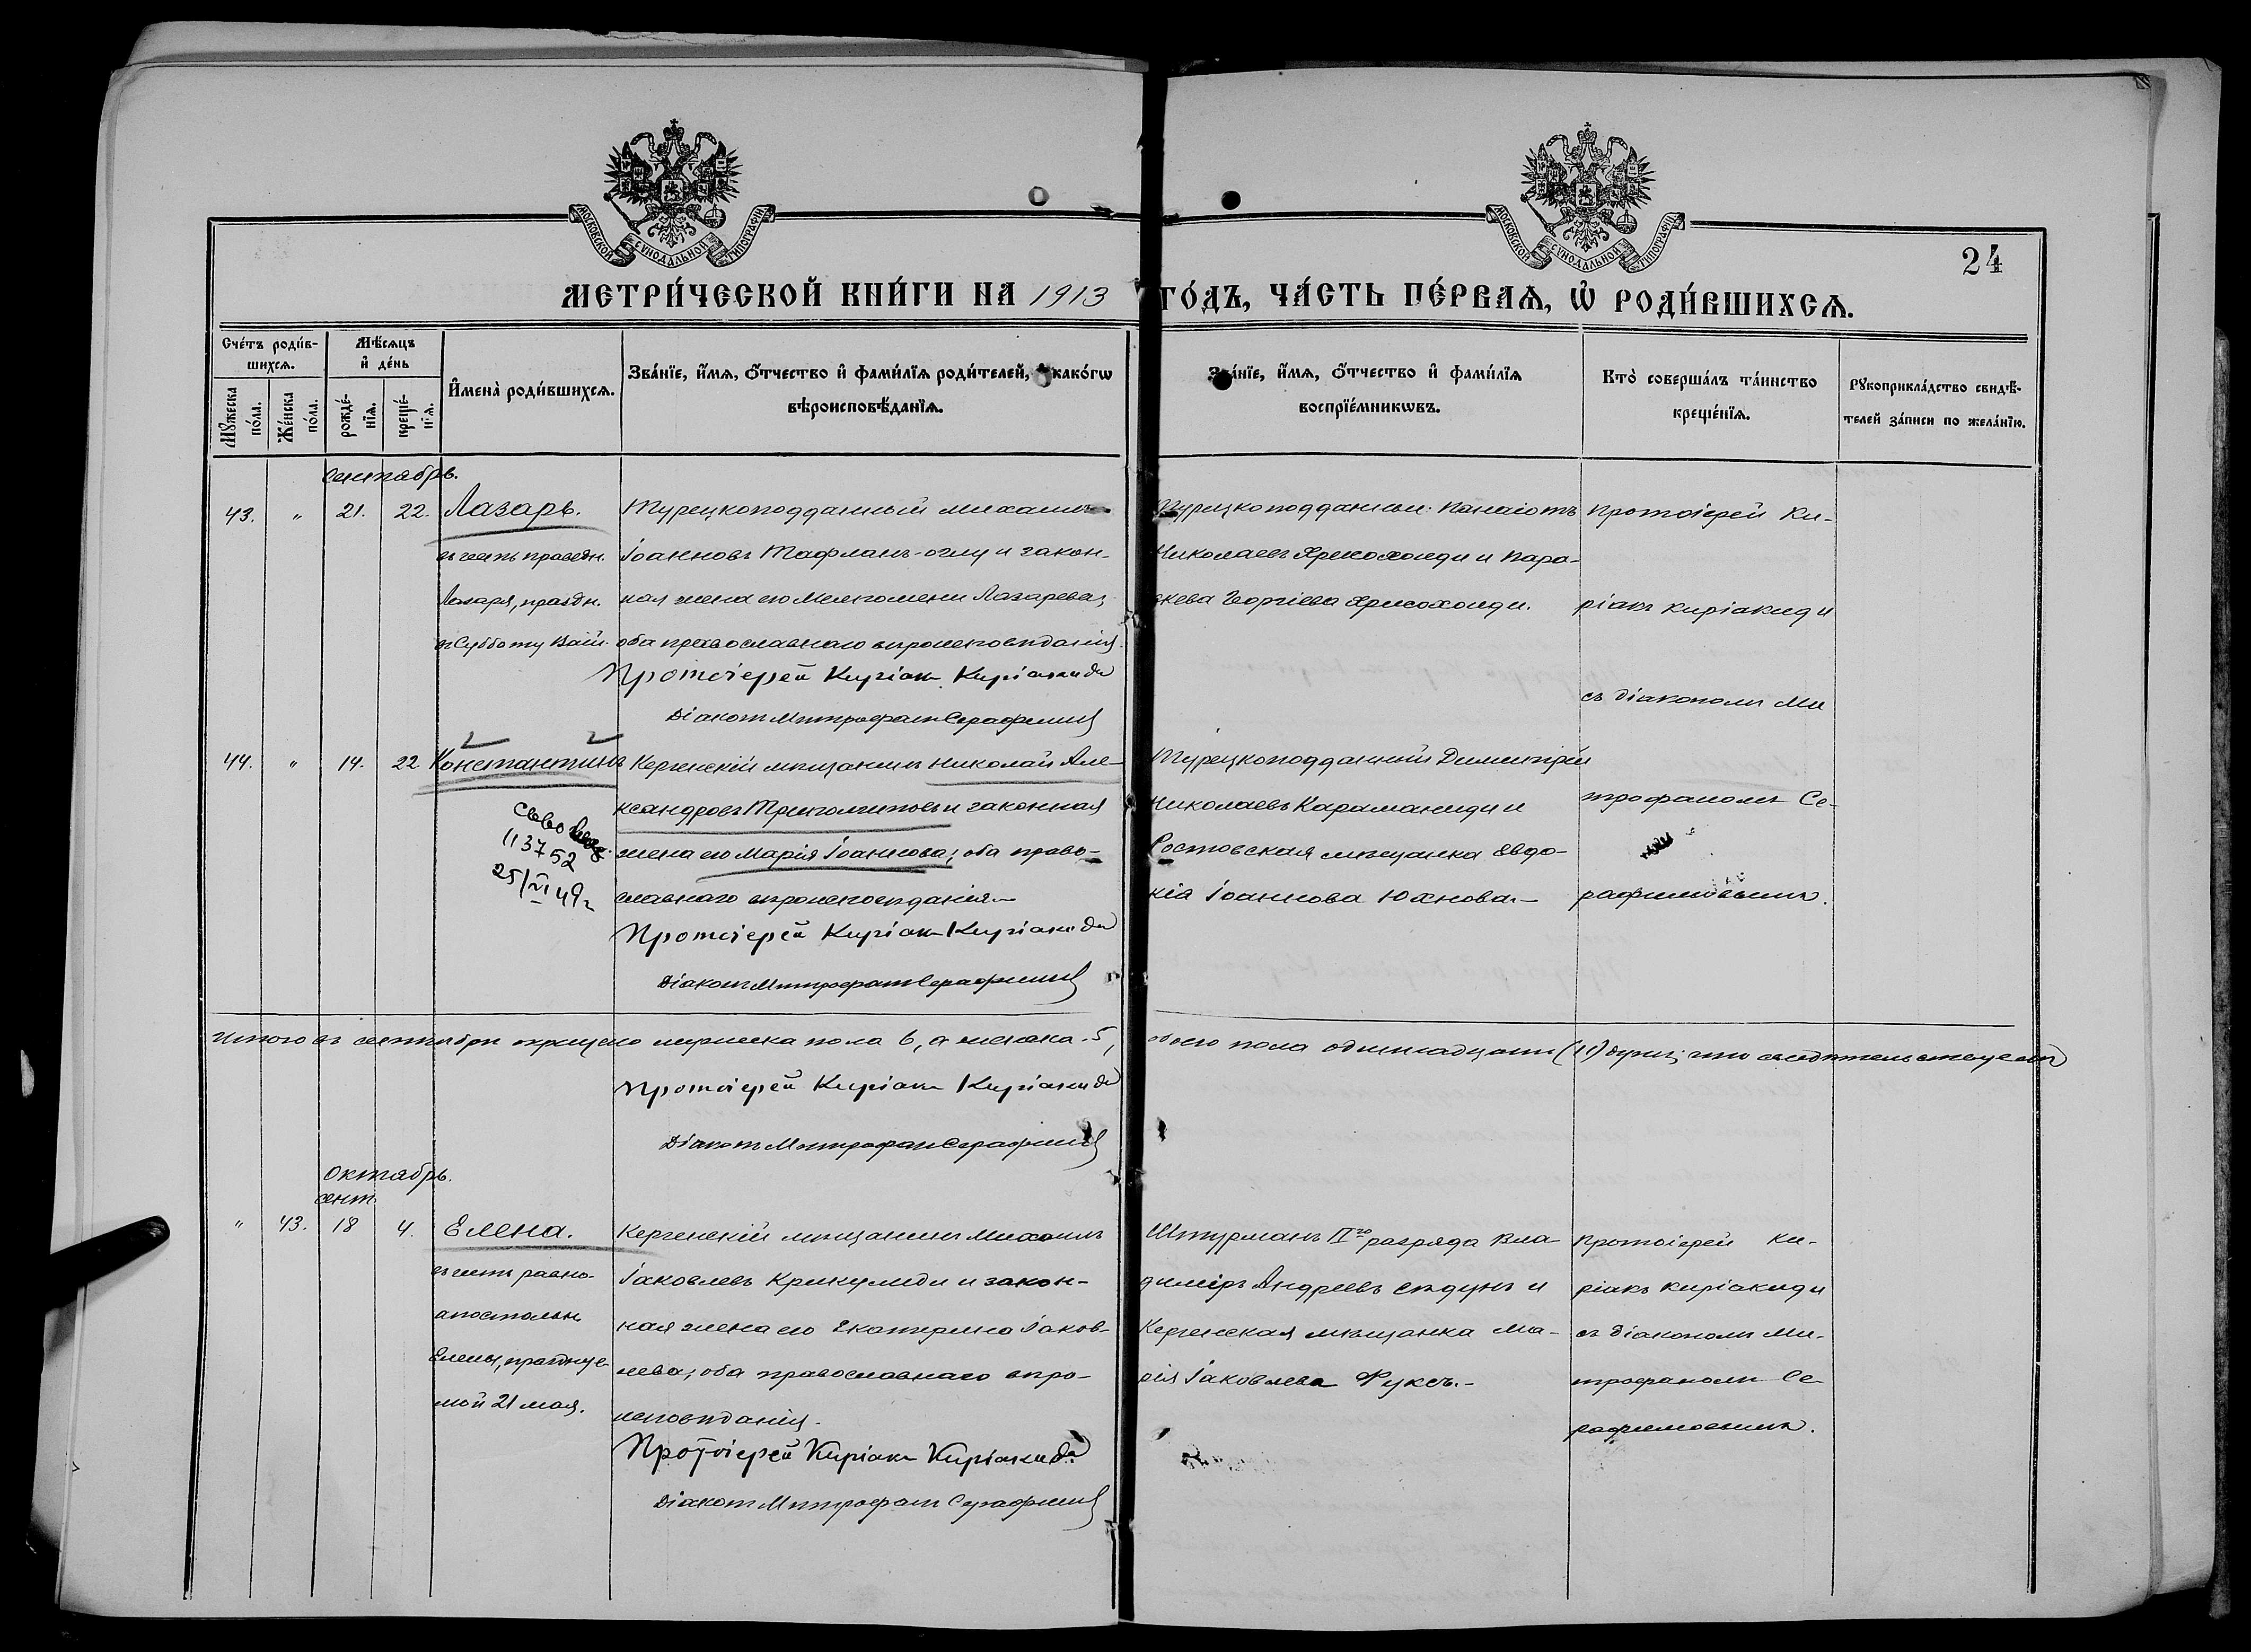 МОСКОВСКОЙ СѴНОДАЛЬНОЙ ТИПОГРАФІИ
МОСКОВСКОЙ СѴНОДАЛЬНОЙ ТИПОГРАФІИ
24
МЕТРИ́ЧЕСКОЙ КНИ́ГИ НА 1913 ГО́ДЪ, ЧА́СТЬ ПЕ́РВАѦ, Ѡ҆ РОДИ́ВШИХСѦ.
Сче́тъ роди́в-
шихсѧ.
Мꙋ́жеска по́ла.
Же́нска по́ла.
Мѣ́сѧцъ
и҆ де́нь
рожде́-
нїѧ.
креще́-
нїѧ.
И҆мена̀ роди́вшихсѧ.
Зва́нїе, и҆́мѧ, ѻ҆́тчество и҆ фамѝлїѧ роди́телей, и҆ како́гѡ
вѣроисповѣ́данїѧ.
Зва́нїе, и҆́мѧ, ѻ҆́тчество и҆ фами́лїѧ
воспрїе́мникѡвъ.
Кто̀ соверша́лъ та́инство
креще́нїѧ.
Рꙋкоприкла́дство свидѣ́-
телей за́писи по жела́нїю.
Сентябрь.
43. " 21. 22. Лазарь.
въ честь праведн.
Лазаря, праздн.
въ Субботу Ваій.
Турецкоподданный Михаилъ
Іоанновъ Тафланъ-оглу и закон-
ная жена его Мелпомени Лазарева,
оба православнаго вѣроисповѣданія.
Протоіерей Киріакъ Киріакиди
Діаконъ Митрофанъ Серафимов
Турецкоподданные: Панаіотъ
Николаевъ Хрисохоиди и Пара-
скева Георгіева Хрисохоиди.
Протоіерей Ки-
ріакъ Киріакиди
съ діакономъ Ми
трофаномъ Се-
рафимовымъ.
44. " 14. 22. Константинъ
113752
25/VI 49г
Керченскій мѣщанинъ Николай Але-
ксандровъ Триголитовъ и законная
жена его Марія Іоаннова, оба право-
славнаго вѣроисповѣданія.-
Протоіерей Киріакъ Киріакиди
Діаконъ Митрофанъ Серафимов
Турецкоподданный Димитрій
Николаевъ Караманиди и
Ростовская мѣщанка Евдо-
кія Іоаннова Юхнова.-
Итого въ сентябрѣ крещено мужеска пола 6, а женска 5, обоего пола одиннадцать (11) душъ; что свидѣтельствуемъ
Протоіерей Киріакъ Киріакиди
Діаконъ Митрофанъ Серафимов
Октябрь.
сент.
" 43. 18 4. Елена.
въ честь равно-
апостольн.
Елены, празднуе-
мой 21 мая.
Керченскій мѣщанинъ Михаилъ
Іаковлевъ Крикулиди и закон-
ная жена его Екатерина Іаков-
лева, оба православнаго вѣро-
исповѣданія.
Протоіерей Киріакъ Киріакиди
Діаконъ Митрофанъ Серафимов
Штурманъ II го разряда Вла-
диміръ Андреевъ Сѣдунъ и
Керченская мѣщанка Ма-
рія Іаковлева Фуксъ.-
Протоіерей Ки-
ріакъ Киріакиди
съ діакономъ Ми-
трофаномъ Се-
рафимовымъ.